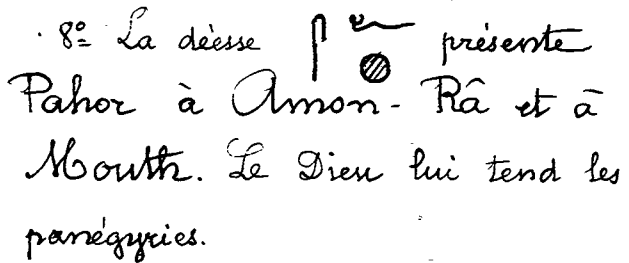 8º La déesse 𓋾 𓆑 𓐍 présente
Pahor à Amon-Râ et à
Mouth. Le Dieu lui tend les
panégyries.